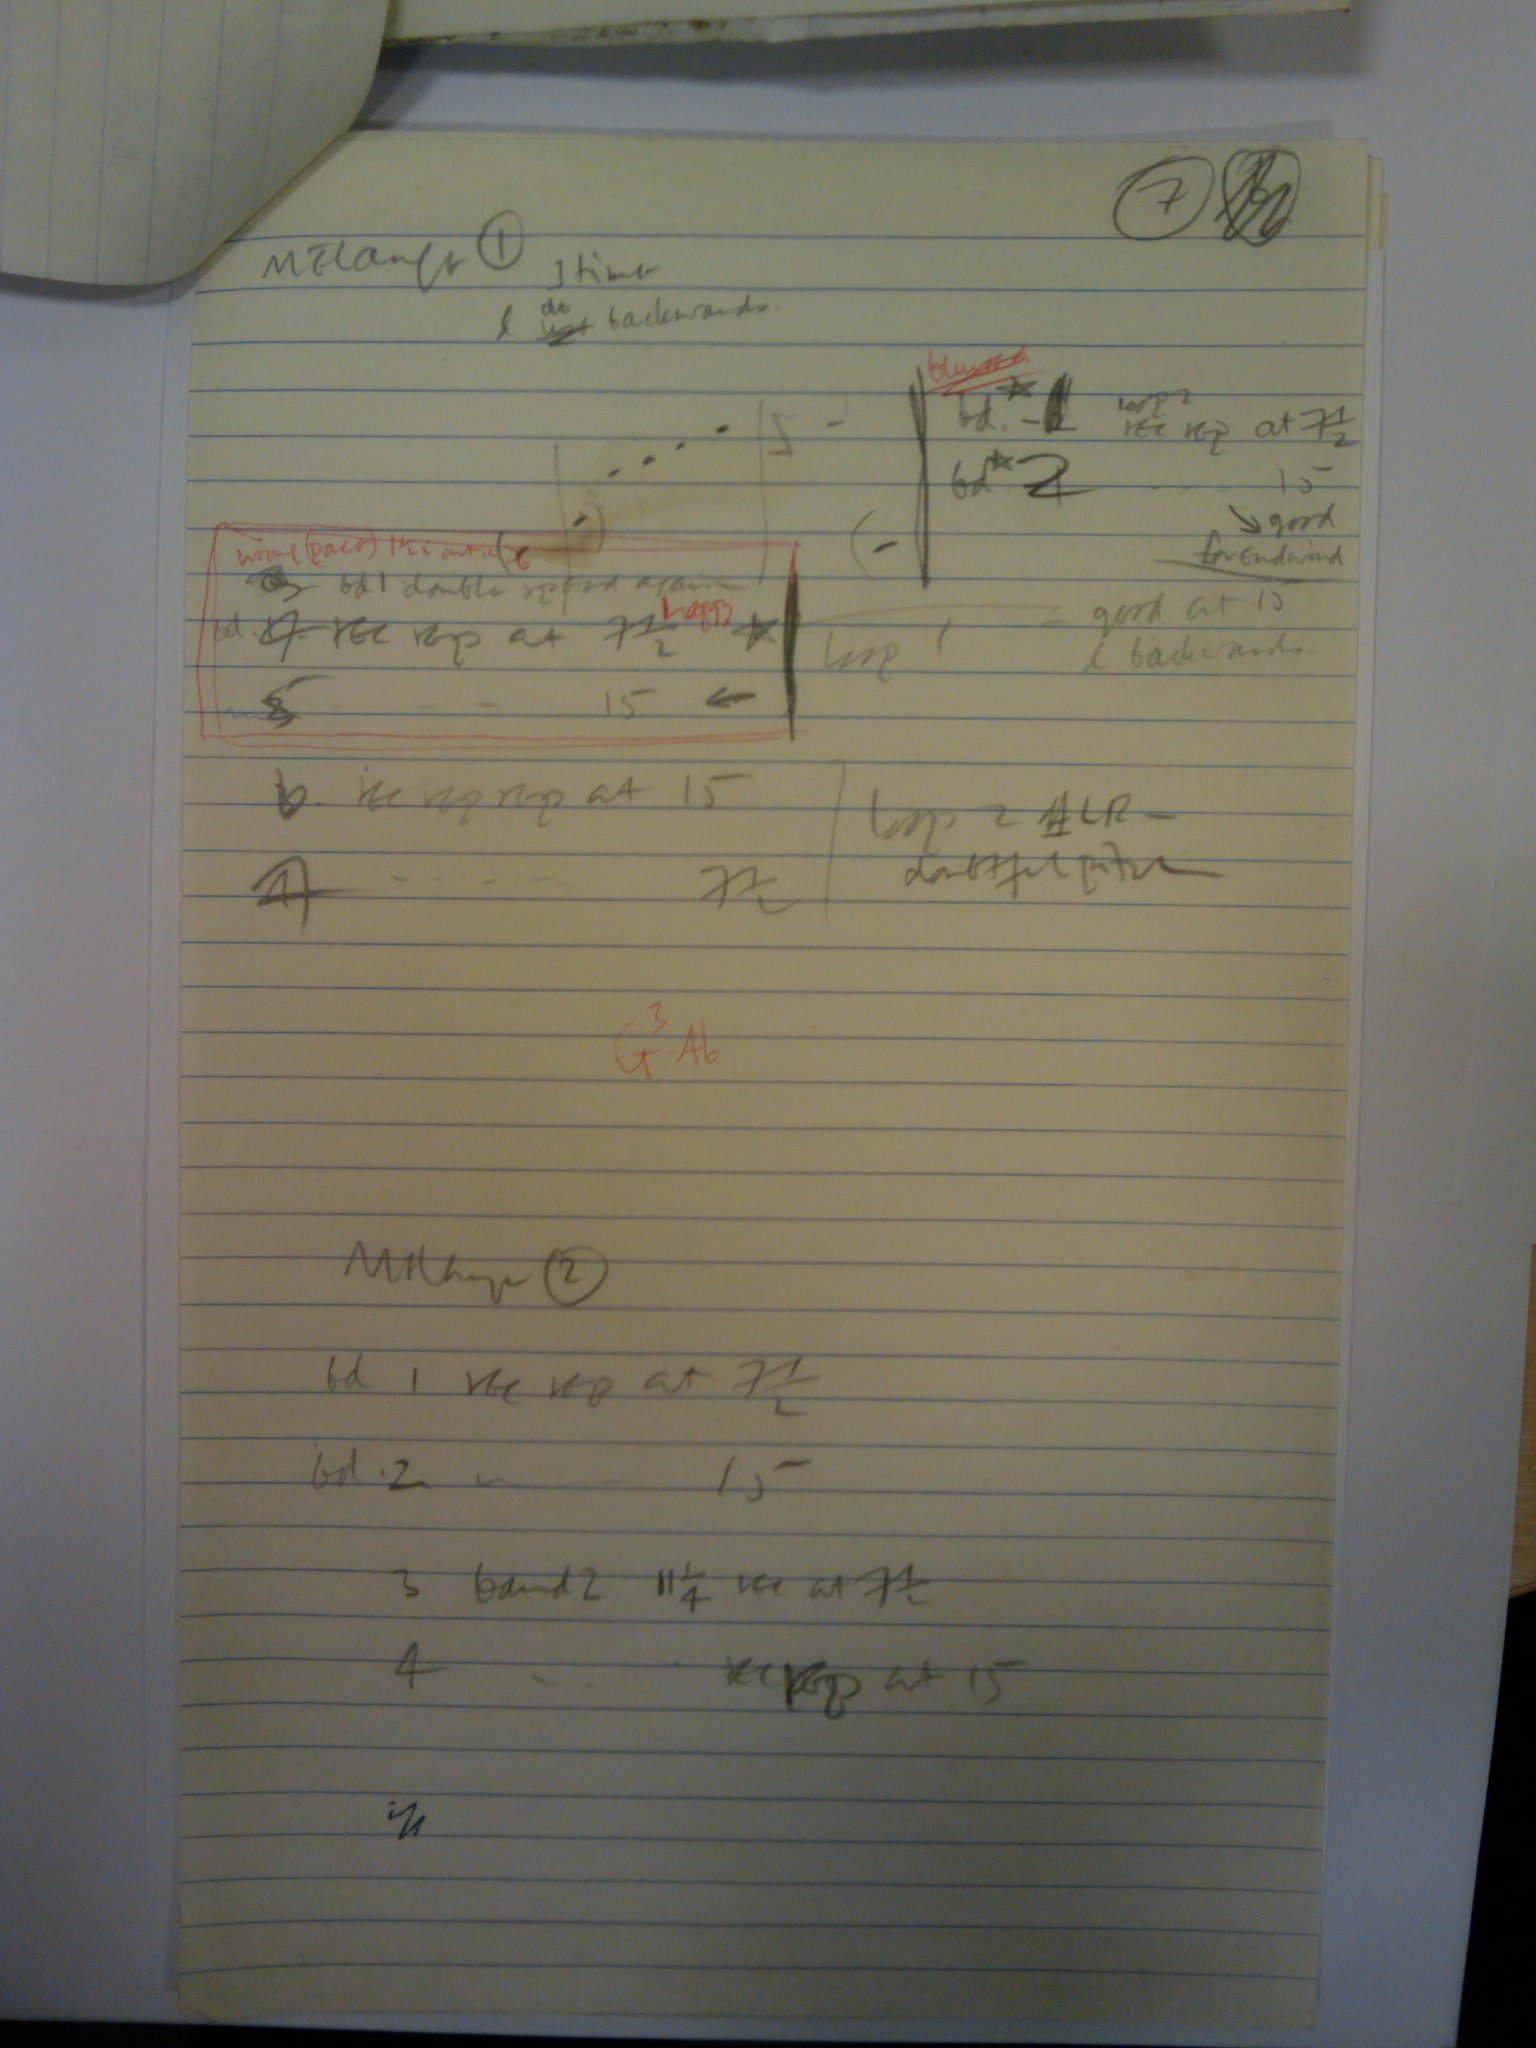 7
Melange 1
3 times
& do backwards.
bd. 1 Loop 2 rec rep at 7½
bd 2 - - - 15
good
for end wind
bd 1 double speed again
bd. 4 rec rep at 7½ happy
5 - - 15
loop 1 = good at 15
& backwards
6. rec rep rep at 15
7 - - - - 7½
loop 2 ALR -
doubtful pitch
G3-Ab
Melange 2
bd 1 rec rep at 7½
bd. 2 - - 15
3 band 2 11¼ rec at 7½
4 - - - rec rep at 15